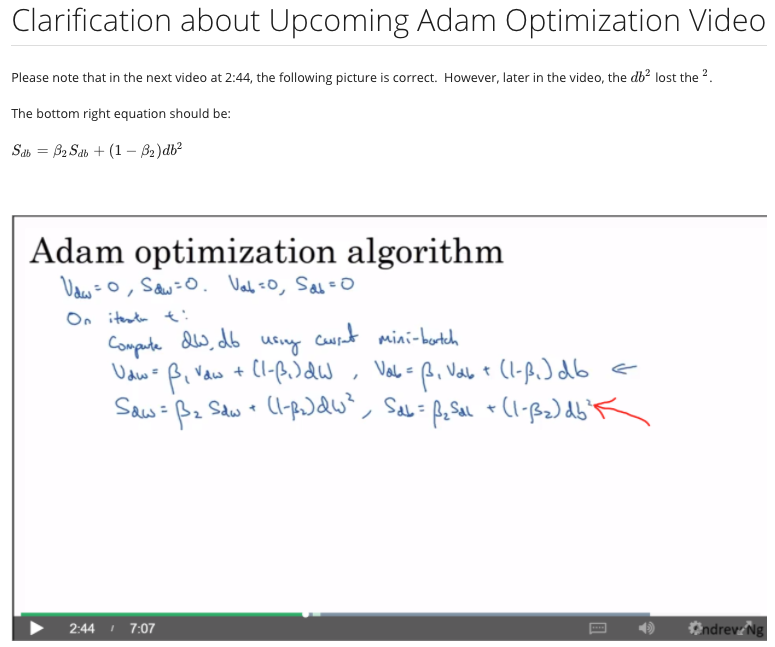 Clarification about Upcoming Adam Optimization Video
Please note that in the next video at 2:44, the following picture is correct. However, later in the video, the db² lost the ².
The bottom right equation should be:
S_db = β₂S_db + (1 − β₂)db²
Adam optimization algorithm
V_dw = 0, S_dw = 0. V_db = 0, S_db = 0
On iteration t:
Compute dW, db using current mini-batch
V_dw = β₁ V_dw + (1-β₁) dW , V_db = β₁ V_db + (1-β₁) db ←
S_dw = β₂ S_dw + (1-β₂) dW² , S_db = β₂ S_db + (1-β₂) db²
2:44 / 7:07
Andrew Ng